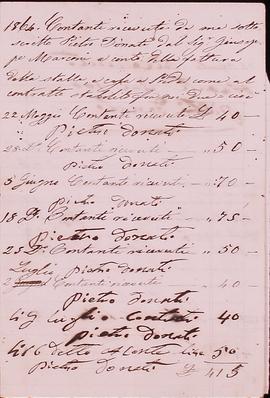 1864. Contanti ricevuti da me sotto
scritto Pietro Donati dal Sig. Giusep-
pe Marconi a conto della fattura
della stalla e casa a come al
contratto stabilito fra noi due
22 Maggio Contanti ricevuti £ 40 —
Pietro Donati
28 D.º Contanti ricevuti — „ 50 —
Pietro Donati
5 Giugno Contanti ricevuti — „ 70 —
Pietro Donati
18 D.º Contanti ricevuti — „ 75 —
Pietro Donati
25 D.º Contanti ricevuti — „ 50 —
Luglio Pietro Donati
2 Contanti ricevuti „ 40 —
Pietro Donati
li 9 Luglio Contati 40
Pietro Donati
li 16 detto Conte lire 50
Pietro Donati £ 415